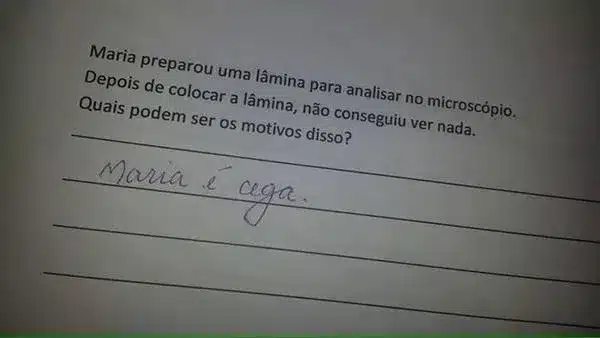 Maria preparou uma lâmina para analisar no microscópio.
Depois de colocar a lâmina, não conseguiu ver nada.
Quais podem ser os motivos disso?
Maria é cega.